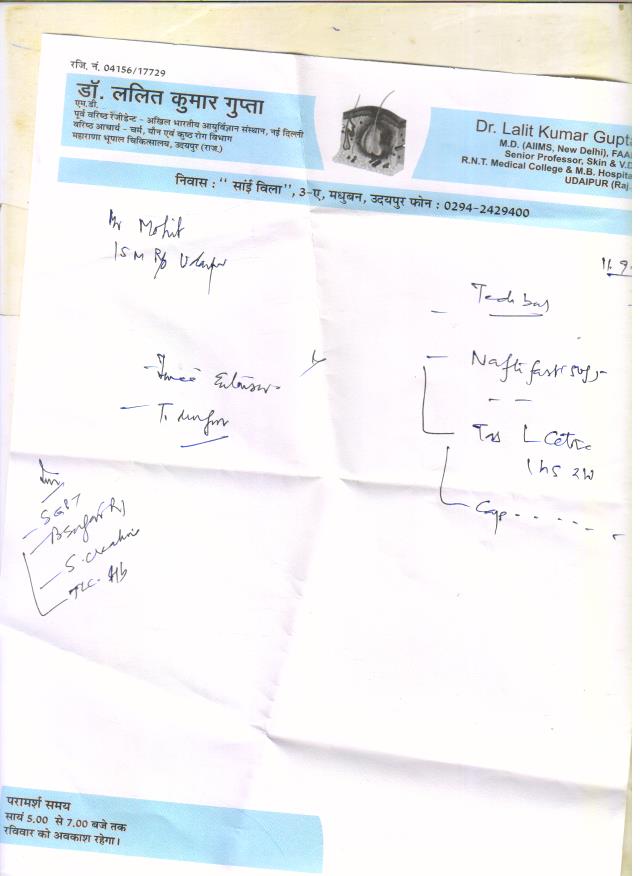 रजि. नं. 04156/17729
डॉ. ललित कुमार गुप्ता
एम.डी.
पूर्व वरिष्ठ रेजीडेन्ट - अखिल भारतीय आयुर्विज्ञान संस्थान, नई दिल्ली
वरिष्ठ आचार्य - चर्म, यौन एवं कुष्ठ रोग विभाग
महाराणा भूपाल चिकित्सालय, उदयपुर (राज.)
Dr. Lalit Kumar Gupta
M.D. (AIIMS, New Delhi), FAA
Senior Professor, Skin & V.D
R.N.T. Medical College & M.B. Hospita
UDAIPUR (Raj.
निवास : " सांई विला", 3-ए, मधुबन, उदयपुर फोन : 0294-2429400
Mr Mohit
15 M R/o Udaipur
11.9.
T.
Naftifast
Tab L Cetriz
1 hs 2w
Cap
SGPT
S. Creatinine
TLC. Hb
परामर्श समय
सायं 5.00 से 7.00 बजे तक
रविवार को अवकाश रहेगा।